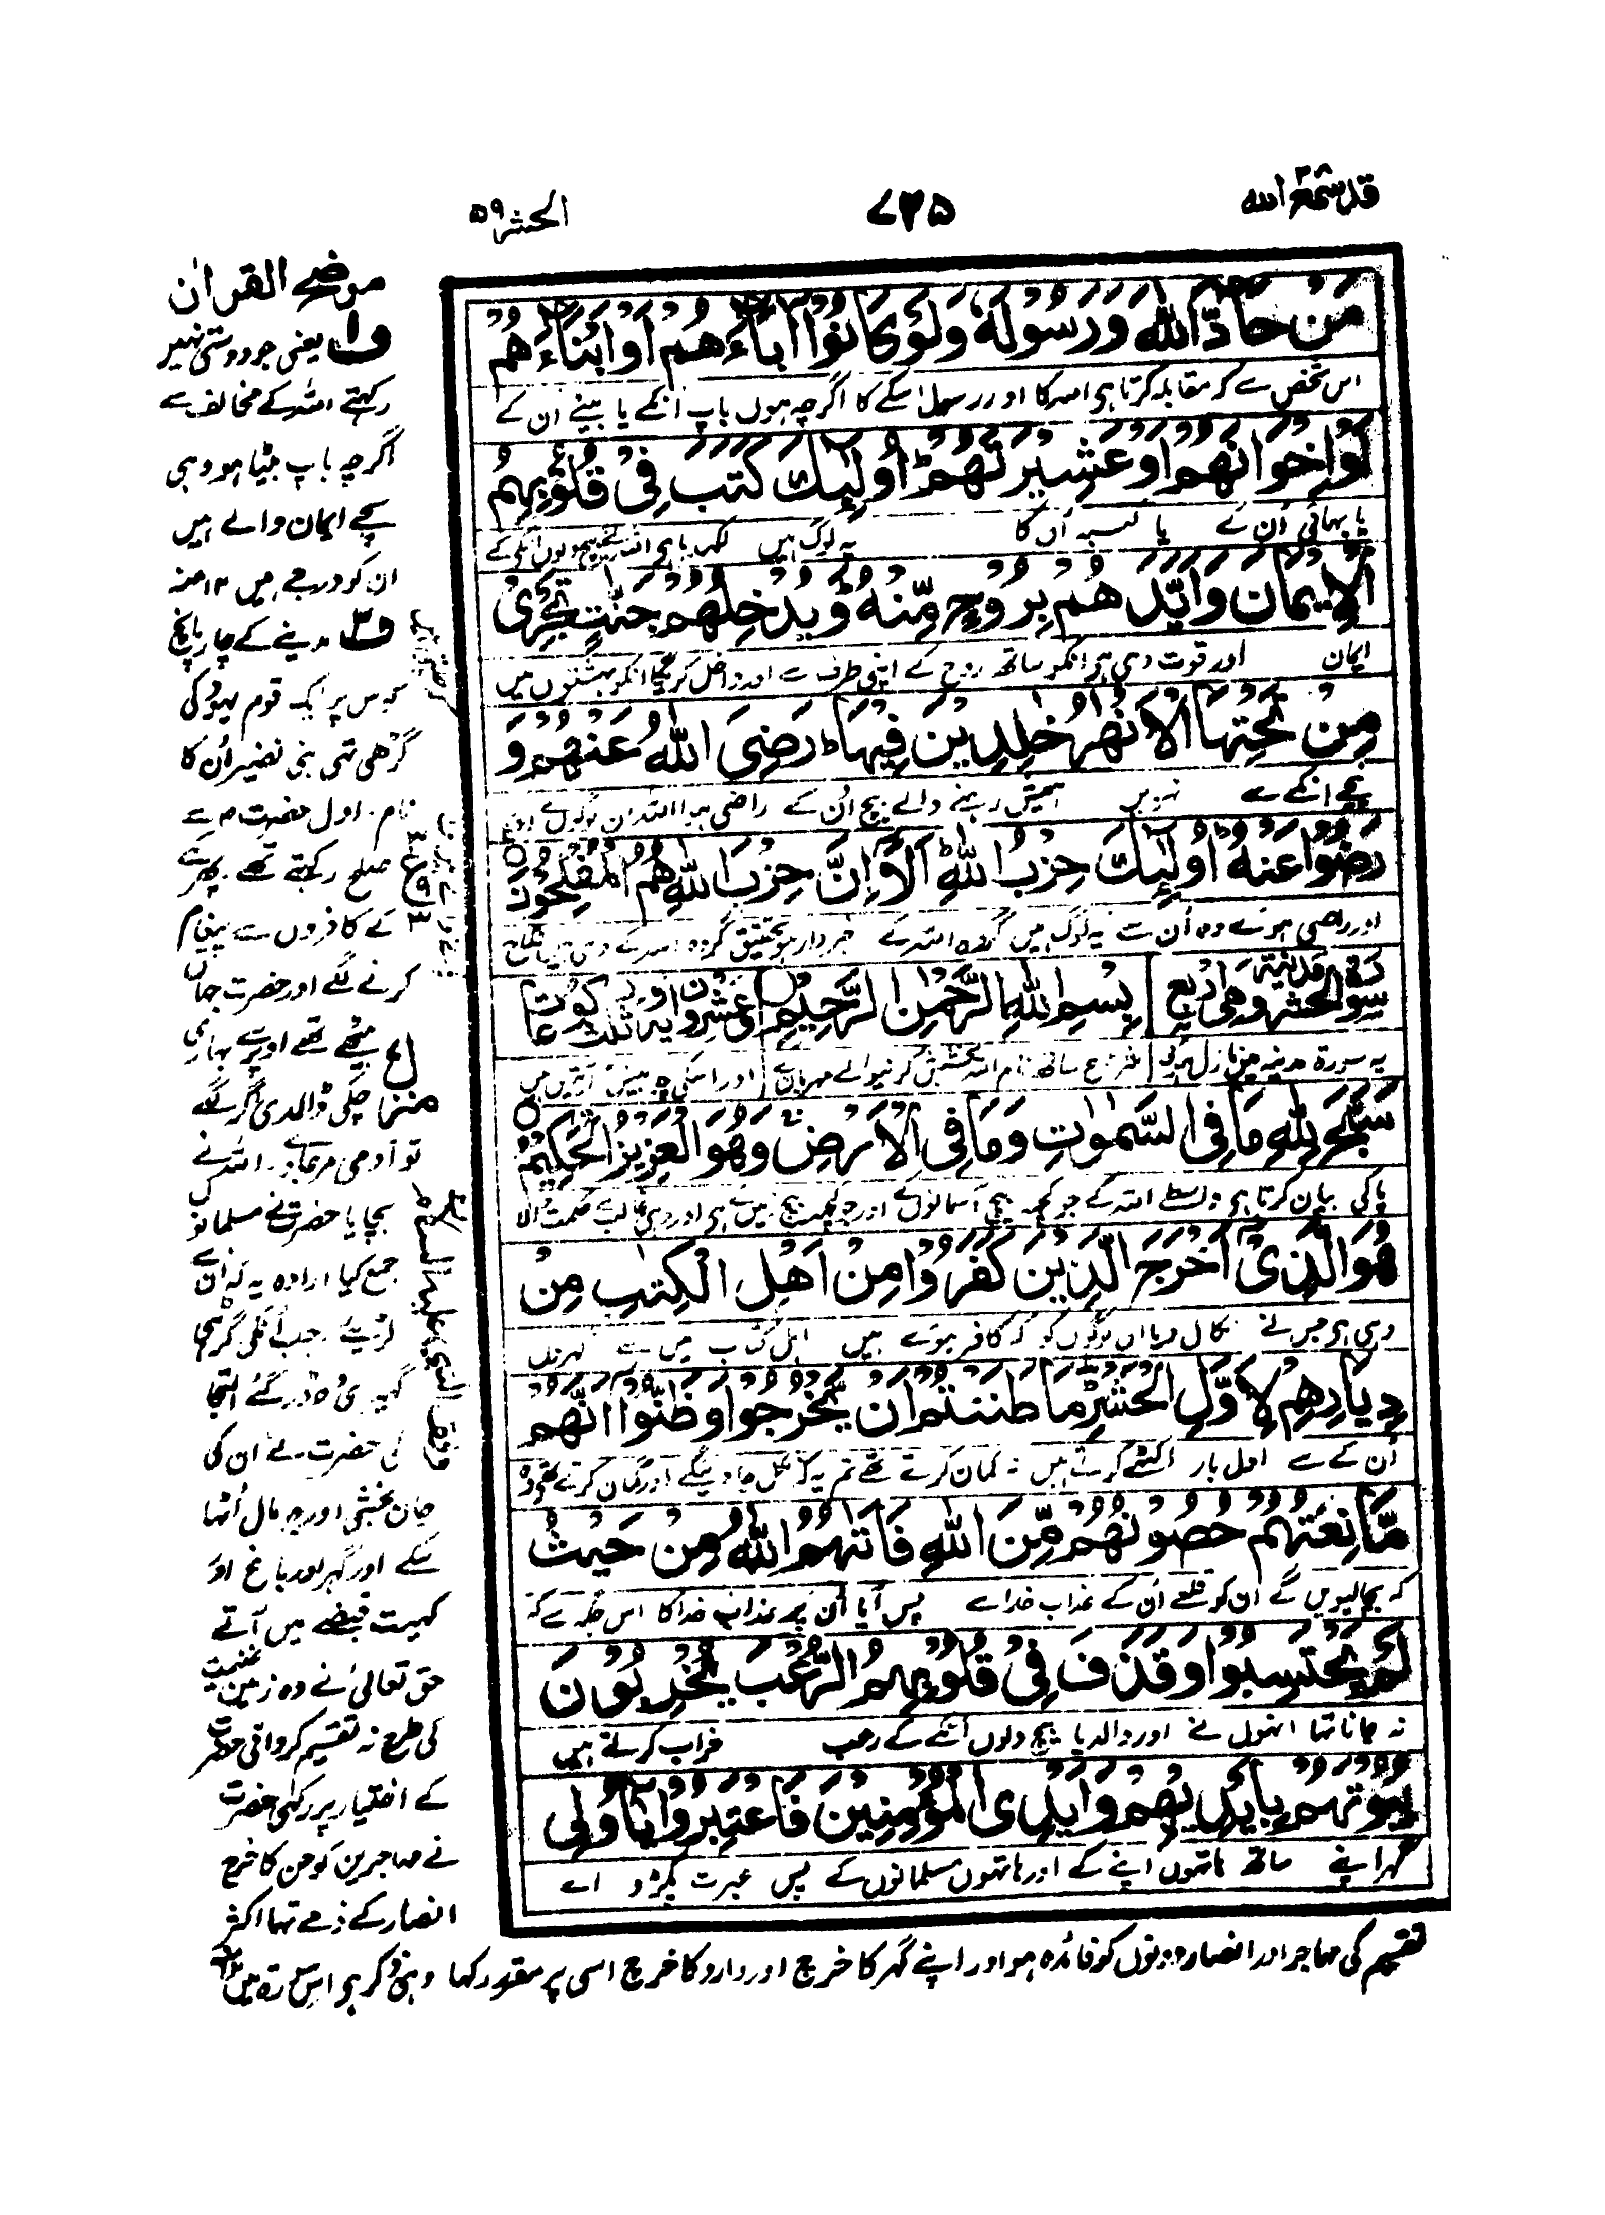 قد سمع الله ٢٨
٧٢٥
الحشر ٥٩
مَنْ حَادَّ اللهَ وَرَسُوْلَهٗ وَلَوْ كَانُوْا اٰبَاءَهُمْ اَوْ اَبْنَاءَهُمْ
اس شخص سے کہ مقابلہ کرتا ہی اللہ کا اور رسول اسکے کا اگرچہ ہوں باپ انکے یا بیٹے ان کے
اَوْ اِخْوَانَهُمْ اَوْ عَشِيْرَتَهُمْ ؕ اُولٰٓئِكَ كَتَبَ فِيْ قُلُوْبِهِمُ
یا بھائی اُن کے یا کنبہ اُن کا یہ لوگ ہیں لکھ دیا ہی اللہ نے بیچ دلوں انکے کے
الْاِيْمَانَ وَاَيَّدَهُمْ بِرُوْحٍ مِّنْهُ ؕ وَيُدْخِلُهُمْ جَنّٰتٍ تَجْرِيْ
ایمان اور قوت دی ہی انکو ساتھ روح کے اپنی طرف سے اور داخل کریگا انکو بہشتوں میں
مِنْ تَحْتِهَا الْاَنْهٰرُ خٰلِدِيْنَ فِيْهَا ؕ رَضِيَ اللهُ عَنْهُمْ وَ
نیچے انکے سے نہریں ہمیش رہنے والے بیچ اُن کے راضی ہوا اللہ ان لوگوں سے اور
رَضُوْا عَنْهُ ؕ اُولٰٓئِكَ حِزْبُ اللهِ ؕ اَلَآ اِنَّ حِزْبَ اللهِ هُمُ الْمُفْلِحُوْنَ
اور راضی ہوئے وہ اُن سے یہ لوگ ہیں گروہ اللہ کے خبردار ہو تحقیق گروہ اللہ کے وہی ہیں فلاح
سورة الحشر مدنية وهي اربع بِسْمِ اللهِ الرَّحْمٰنِ الرَّحِيْمِ وعشرون اية وثلث ركوعات
یہ سورة مدینہ میں نازل ہوئی شروع ساتھ نام اللہ بخشش کرنیوالے مہربان کے اور اسکی چوبیس آیتیں ہیں
سَبَّحَ لِلّٰهِ مَا فِي السَّمٰوٰتِ وَمَا فِي الْاَرْضِ ۚ وَهُوَ الْعَزِيْزُ الْحَكِيْمُ
پاکی بیان کرتا ہی واسطے اللہ کے جو کچھ بیچ آسمانوں کے اور جو کچھ بیچ زمین کے ہی اور وہی غالب حکمت والا
هُوَ الَّذِيْٓ اَخْرَجَ الَّذِيْنَ كَفَرُوْا مِنْ اَهْلِ الْكِتٰبِ مِنْ
وہی ہی جس نے نکال دیا ان لوگوں کو کہ کافر ہوئے ہیں اہل کتاب میں سے گھروں
دِيَارِهِمْ لِاَوَّلِ الْحَشْرِ ؕ مَا ظَنَنْتُمْ اَنْ يَّخْرُجُوْا وَظَنُّوْٓا اَنَّهُمْ
اُن کے سے اول بار اکٹھے کرنے میں نہ گمان کرتے تھے تم یہ کہ نکل جاوینگے اور گمان کرتے تھے وہ
مَّانِعَتُهُمْ حُصُوْنُهُمْ مِّنَ اللهِ فَاَتٰهُمُ اللهُ مِنْ حَيْثُ
کہ بچالیویں گے ان کو قلعے اُن کے عذاب خدا سے پس آیا اُن پر عذاب خدا کا اس جگہ سے کہ
لَمْ يَحْتَسِبُوْا وَقَذَفَ فِيْ قُلُوْبِهِمُ الرُّعْبَ يُخْرِبُوْنَ
نہ جانا تھا انہوں نے اور ڈالدیا بیچ دلوں انکے کے رعب خراب کرتے ہیں
بُيُوْتَهُمْ بِاَيْدِيْهِمْ وَاَيْدِي الْمُؤْمِنِيْنَ فَاعْتَبِرُوْا يٰٓاُولِي
گھر اپنے ساتھ ہاتھوں اپنے کے اور ہاتھوں مسلمانوں کے پس عبرت پکڑو اے
موضح القران
ف١ یعنی جو دوستی نہیں
رکھتے اللہ کے مخالف سے
اگرچہ باپ بیٹا ہو وہی
سچے ایمان والے ہیں
ان کو درجے ہیں ١٢منہ
ف٢ مدینے کے چار پانچ
کوس پر ایک قوم یہود کی
گڑھی تھی بنی نضیر اُن کا
نام اول حضرت سے
صلح رکھتے تھے پھر
کے کافروں سے پیغام
کرنے لگے اور حضرت جہاں
بیٹھے تھے اوپر سے بھاری
چکی ڈالدی اگر لگے
تو آدمی مرجاوے اللہ نے
بچایا حضرت نے مسلمانوں
جمع کیا ارادہ یہ کہ اُن سے
لڑیے جب اُنکی گڑھی
گھیری ڈر گئے التجا
کی حضرت نے ان کی
جان بخشی اور جو مال اُٹھا
سکے اور گھر اور باغ اور
کھیت قبضے میں آئے
حق تعالیٰ نے وہ زمین غنیمت
کی طرح نہ تقسیم کروائی حضرت
کے اختیار پر رکھی حضرت
نے مہاجرین کو جن کا خرچ
انصار کے ذمے تھا اکثر
تقسیم کی مہاجر اور انصار دونوں کو فائدہ ہوا اور اپنے گھر کا خرچ اور وارد کا خرچ اسی پر مقرر رکھا وہی ذکر ہی اس سورة میں